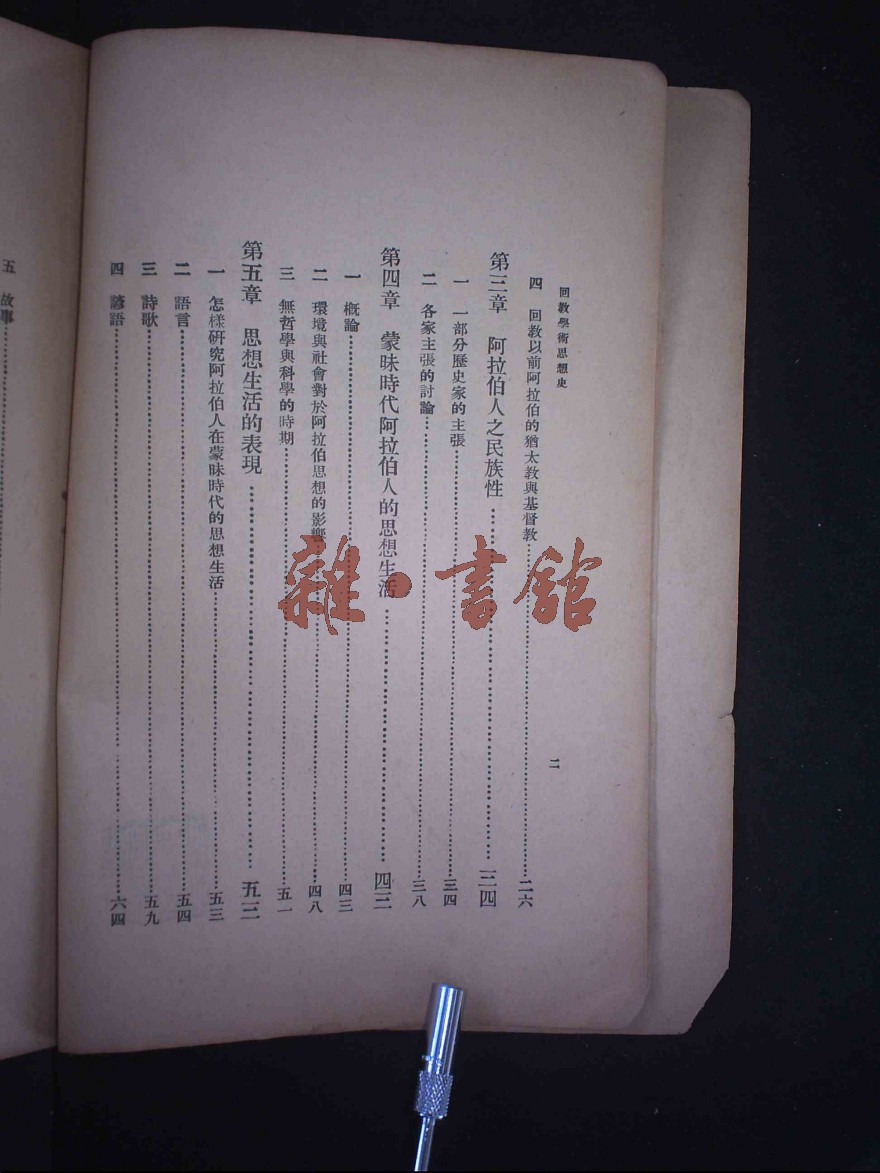 回教學術思想史
二
四 回教以前阿拉伯的猶太教與基督教……二六
第三章 阿拉伯人之民族性……三四
一 一部分歷史家的主張……三四
二 各家主張的討論……三八
第四章 蒙昧時代阿拉伯人的思想生活……四三
一 概論……四三
二 環境與社會對於阿拉伯思想的影響……四八
三 無哲學與科學的時期……五一
第五章 思想生活的表現……五三
一 怎樣研究阿拉伯人在蒙昧時代的思想生活……五三
二 語言……五四
三 詩歌……五九
四 諺語……六四
五 故事
雜·書館